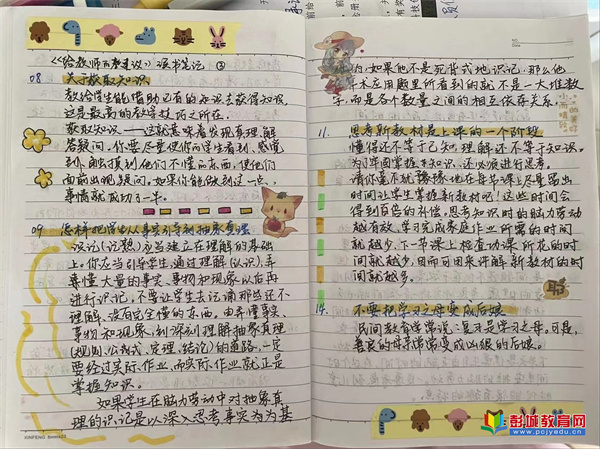 《给教师的建议》读书笔记 ③
08 关于获取知识
教给学生能借助已有的知识去获得知识,
这是最高的教学技巧之所在.
获取知识——这就意味着发现真理、解
答疑问。你要尽量使你的学生看到、感觉
到、触摸到他们不懂的东西,使他们
面前出现疑问。如果你能做到这一点,
事情就成功了一半.
09 怎样把学生从事实引导到抽象真理
识记(记熟)应当建立在理解的基础
上。你应当引导学生,通过理解(认识)、弄
清懂大量的事实、事物和现象以后再
进行识记,不要让学生去记诵那些还不
理解、没有完全懂的东西。由弄懂事实、
事物和现象,到深刻理解抽象真理
(规则、公式、定理、结论)的道路,一定
要经过实际作业,而实际作业就正是
掌握知识。
如果学生在脑力劳动中对抽象真
理的识记是以深入思考事实为为基
XINFENG
的,如果他不是死背式地识记,那么他
术应用题里所看到的就不是一大堆数
字,而是各个数量之间的相互依存关系.
小而晴朗
的美好
11. 思考新教材是上课的一个阶段
懂得还不等于已知,理解还不等于知识。
为了牢固掌握于知识,还必须进行思考。
请你毫不犹豫地在每节课上尽量留出
时间让学生掌握新教材吧!这些时间会
得到百倍的补偿。思考知识时的脑力劳动
越有效,学习完成家庭作业所需的时间
就越少,下一节课上检查功课所花的时
间就越少,因而可用来讲解新教材的时
间就越多。
14. 不要把学习之母变成后娘
民间教育学常说:复习是学习之母。可是,
善良的母亲常常变成凶狠的后娘。
彭城教育网
www.pcjyedu.cn